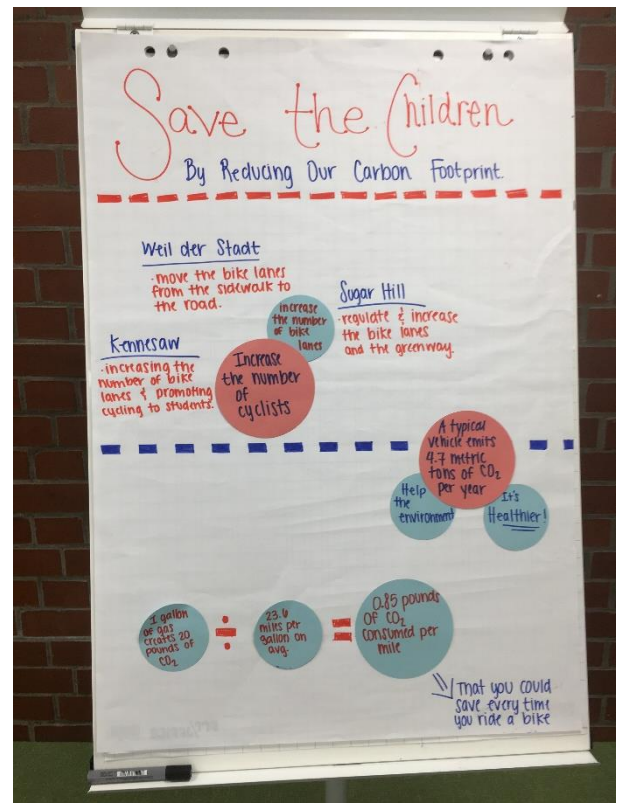 Save the Children
By Reducing Our Carbon Footprint.
Weil der Stadt
·move the bike lanes
from the sidewalk to
the road.
Sugar Hill
·regulate & increase
the bike lanes
and the greenway.
increase
the number
of bike
lanes
Kennesaw
·increasing the
number of bike
lanes & promoting
cycling to students.
Increase
the number
of
cyclists
A typical
vehicle emits
4.7 metric
tons of CO₂
per year
Help
the
environment
It's
Healthier!
1 gallon
of gas
creates 20
pounds of
CO₂
÷
23.6
miles per
gallon on
avg.
=
0.85 pounds
of CO₂
consumed per
mile
That you could
save every time
you ride a bike